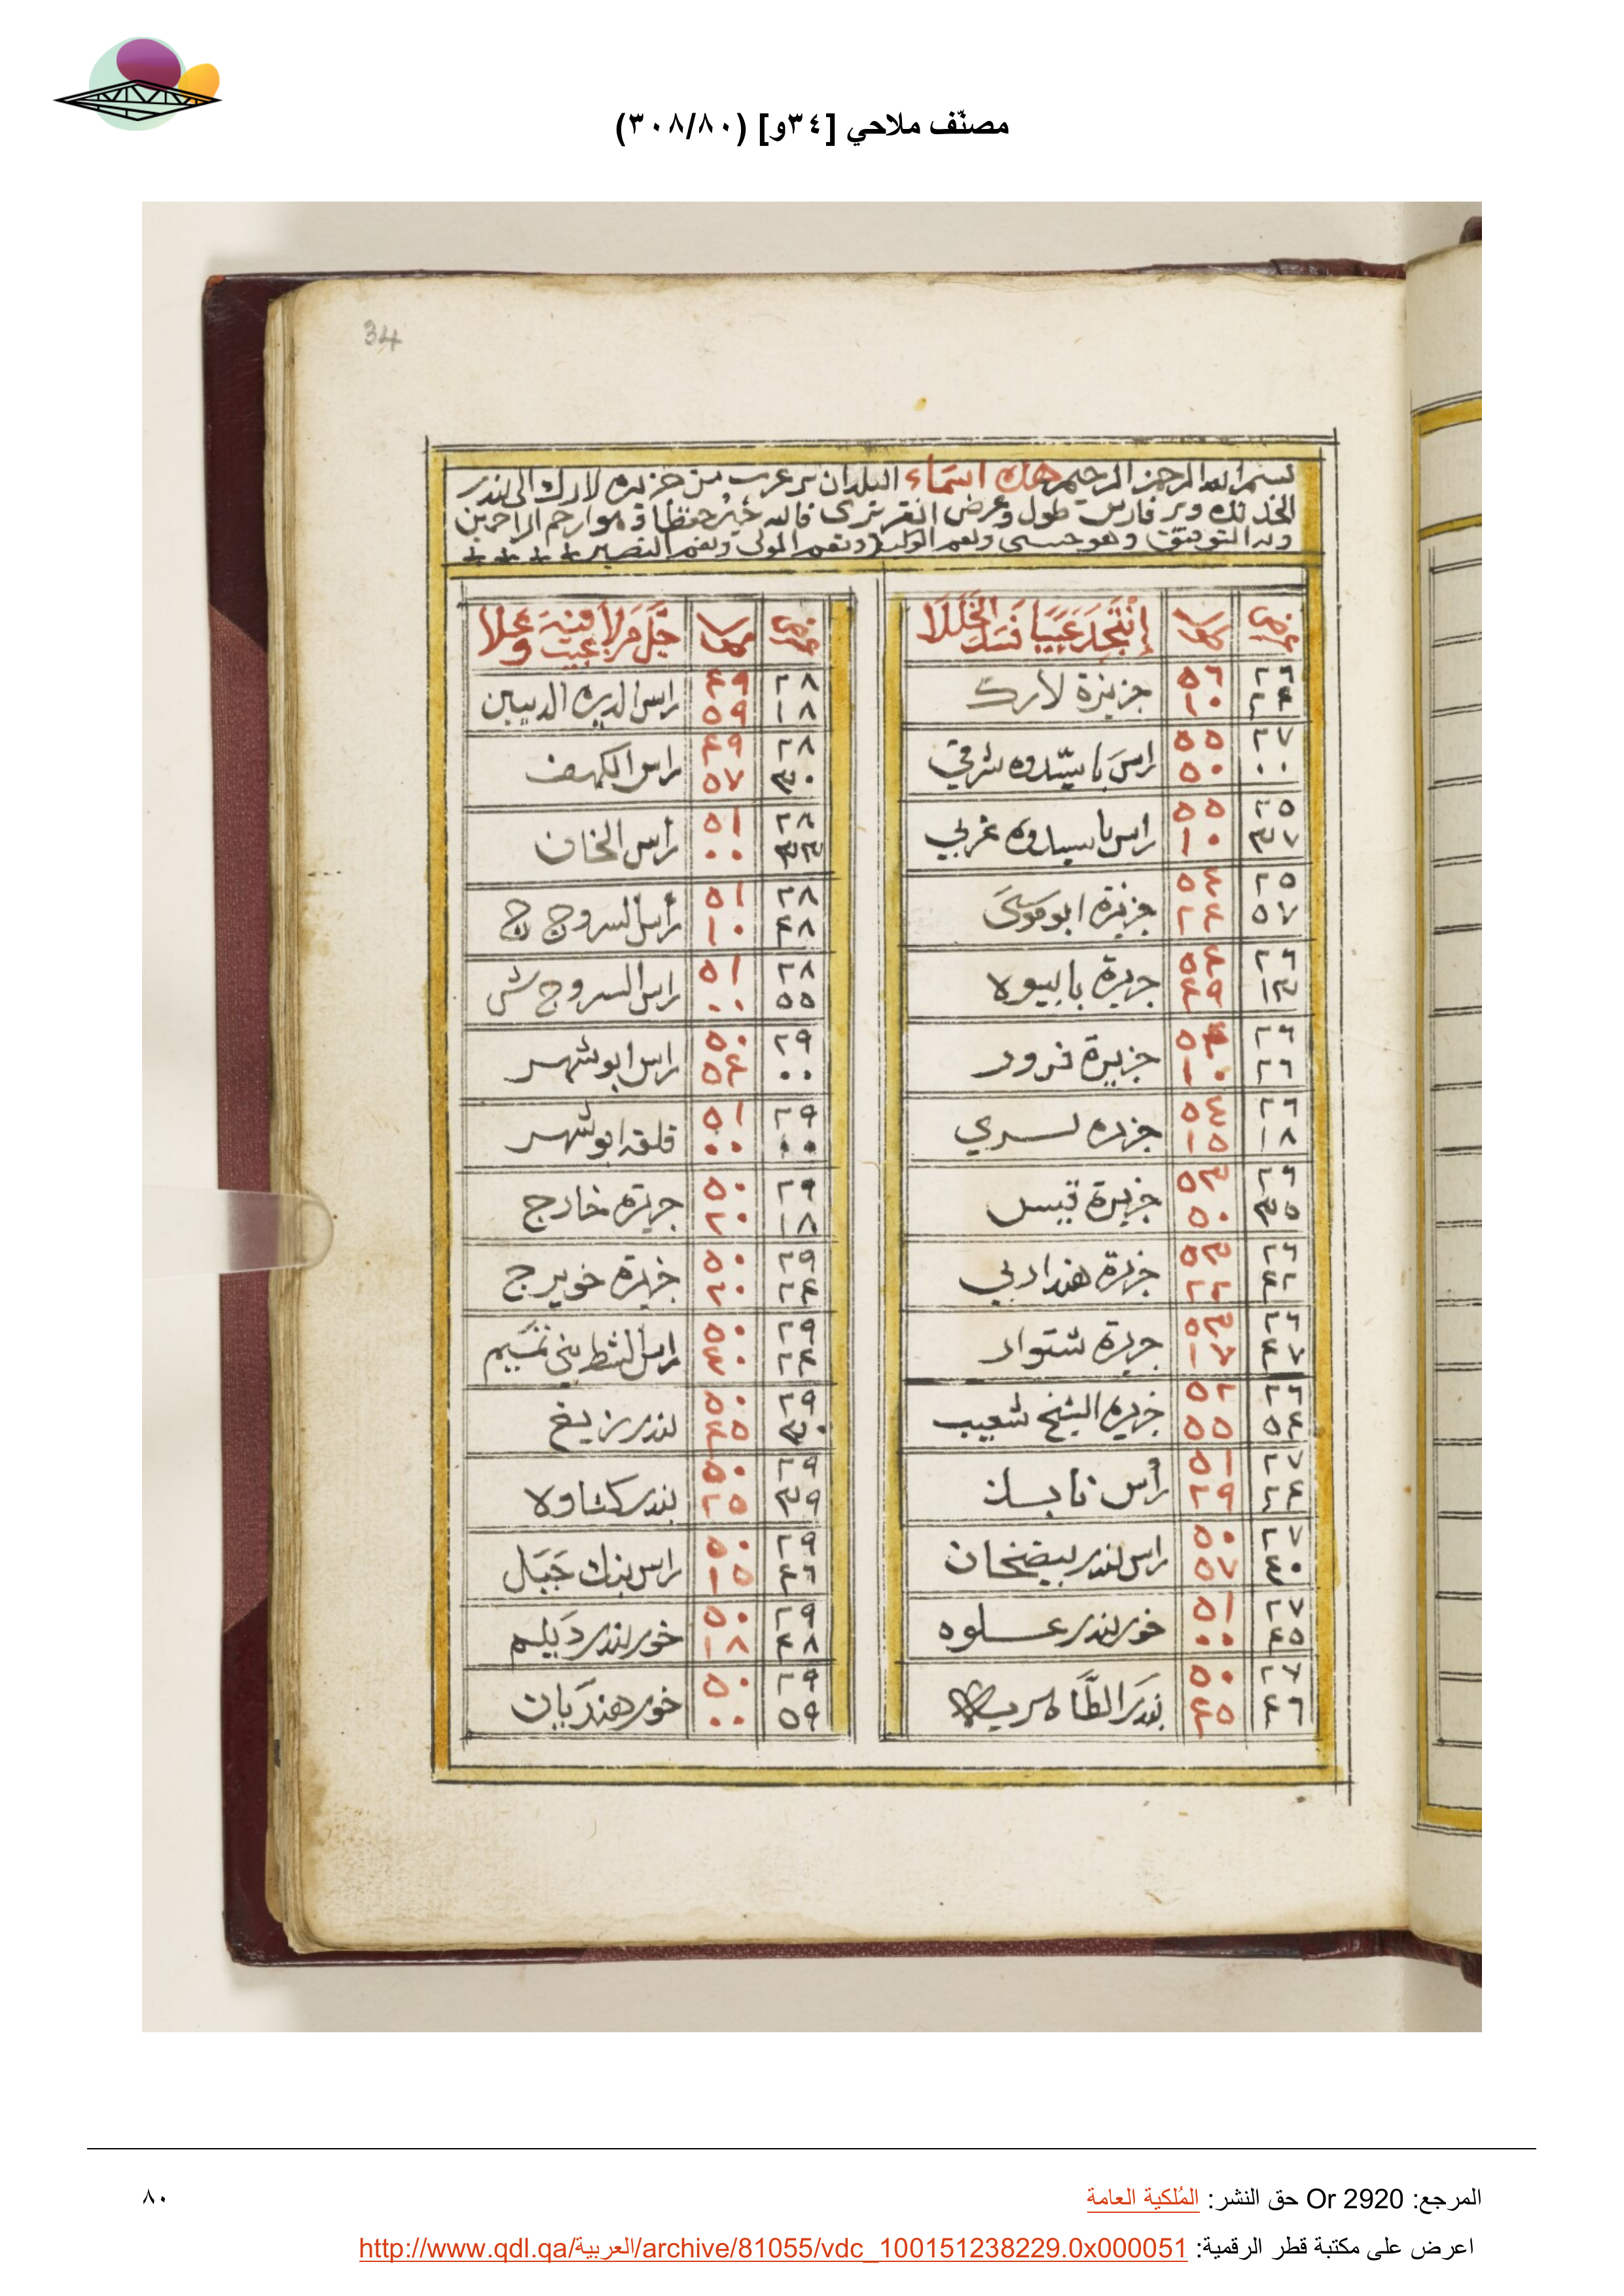 مصنّف ملاحي [٣٤و] (٣٠٨/٨٠)
34
بسم الله الرحمن الرحيم هذه اسماء البلدان بر عرب من جزيره لارك الى بندر
وبر فارس طول وعرض انقريزى فالله خير حفظا وهو ارحم الراحمين
وبه التوفيق وهو حسبى ونعم الوكيل ونعم المولى ونعم النصير
عرض
٢٦ ٢٤ ٥٦ ١٠ جزيزة لارك
٢٧ ٠٠ ٥٥ ٥٠ راس باسيّدوه شرقي
٢٥ ٣٧ ٥٥ ١٠ راس باسيدوه غربي
٢٥ ٥٧ ٥٤ ٢٤ جزيزة ابو موسى
٢٦ ١٣ ٥٤ ٤٩ جزيرة بابيوه
٢٦ ٢٦ ٥٤ ١٠ جزيرة فرور
٢٦ ١٨ ٥٤ ١٥ جزيره سري
٢٦ ٣٥ ٥٣ ٥٠ جزيرة قيس
٢٦ ٤٢ ٥٣ ٢٢ جزيرة هندرابي
٢٦ ٤٧ ٥٣ ١٧ جزيرة شتوار
٢٦ ٥٤ ٥٢ ٥٥ جزيره الشيخ شعيب
٢٧ ٢٤ ٥١ ٢٩ رأس نابند
٢٧ ٤٠ ٥٠ ٥٧ راس بندر بيضخان
٢٧ ٤٥ ٥١ ٠٠ خور بندر عسلوه
٢٧ ٤٦ ٥٠ ٤٥ بندر الطاهريه
عرض
٢٨ ١٨ ٤٩ ٥٩ راس الديره الديين
٢٨ ٣٠ ٤٩ ٥٧ راس الكهف
٢٨ ٣٣ ٥١ ٠٠ رأس الخان
٢٨ ٤٨ ٥١ ١٠ رأس السروج ج
٢٨ ٥٥ ٥١ ٠٠ راس السروج ش
٢٩ ٠٠ ٥٠ ٥٤ راس ابوشهر
٢٩ ٠٠ ٥١ ٠٠ قلقه ابوشهر
٢٩ ١٨ ٥٠ ٢٠ جزيرة خارج
٢٩ ٢٤ ٥٠ ٢٠ جزيرة خويرج
٢٩ ٢٤ ٥٠ ٤٠ راس الشط بني تميم
٢٩ ٣٠ ٥٠ ٤٥ بندر ريغ
٢٩ ٣٩ ٥٠ ٢٥ بندر كناوه
٢٩ ٤٦ ٥٠ ١٥ راس بنك جبل
٢٩ ٤٨ ٥٠ ١٨ خور بندر ديلم
٢٩ ٥٩ ٥٠ ٠٠ خور هنديان
المرجع: Or 2920 حق النشر: المُلكية العامة
٨٠
اعرض على مكتبة قطر الرقمية: http://www.qdl.qa/العربية/archive/81055/vdc_100151238229.0x000051